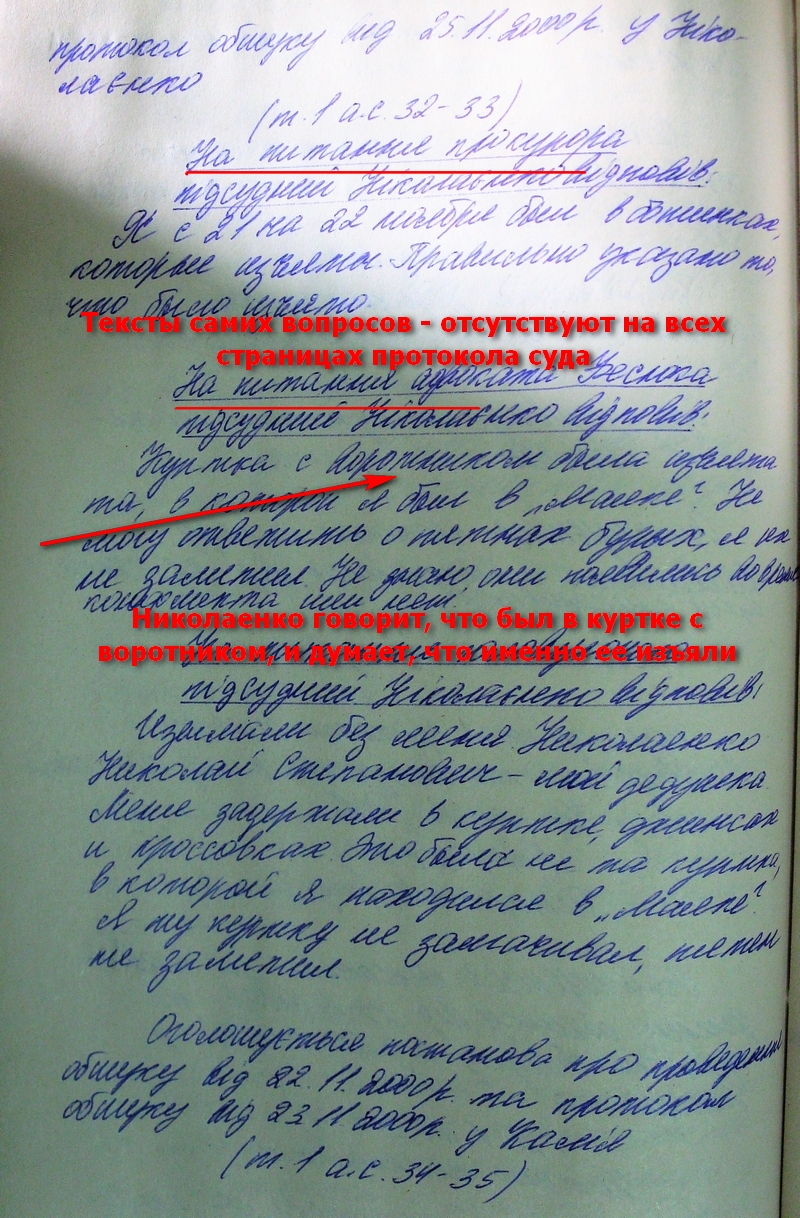 протокол обшуку від 25.11.2000р. у Ніко-
лаєнко
(т.1 а.с. 32-33)
На питання прокурора
підсудний Ніколаєнко відповів:
Я с 21 на 22 ноября был в ботинках,
которые изъяты. Правильно указано то,
что было изъято.
Тексты самих вопросов - отсутствуют на всех
страницах протокола суда
На питання адвоката
підсудний Ніколаєнко відповів:
Куртка с воротником была изъята
та, в которой я был в „Маяке". Не
могу ответить о пятнах бурых, я их
не заметил. Не знаю, они появились во время
конфликта или нет.
Николаенко говорит, что был в куртке с
воротником, и думает, что именно ее изъяли
На питання
підсудний Ніколаєнко відповів:
Изымали без меня. Николаенко
Николай Степанович - мой дедушка.
Меня задержали в куртке, джинсах
и кроссовках. Это была не та куртка,
в которой я находился в „Маяке".
Я ту куртку не застачивал, пятен
не заметил.
Оголошується постанова про проведення
обшуку від 22.11.2000р. та протокол
обшуку від 23.11.2000р. у
(т.1 а.с. 34-35)